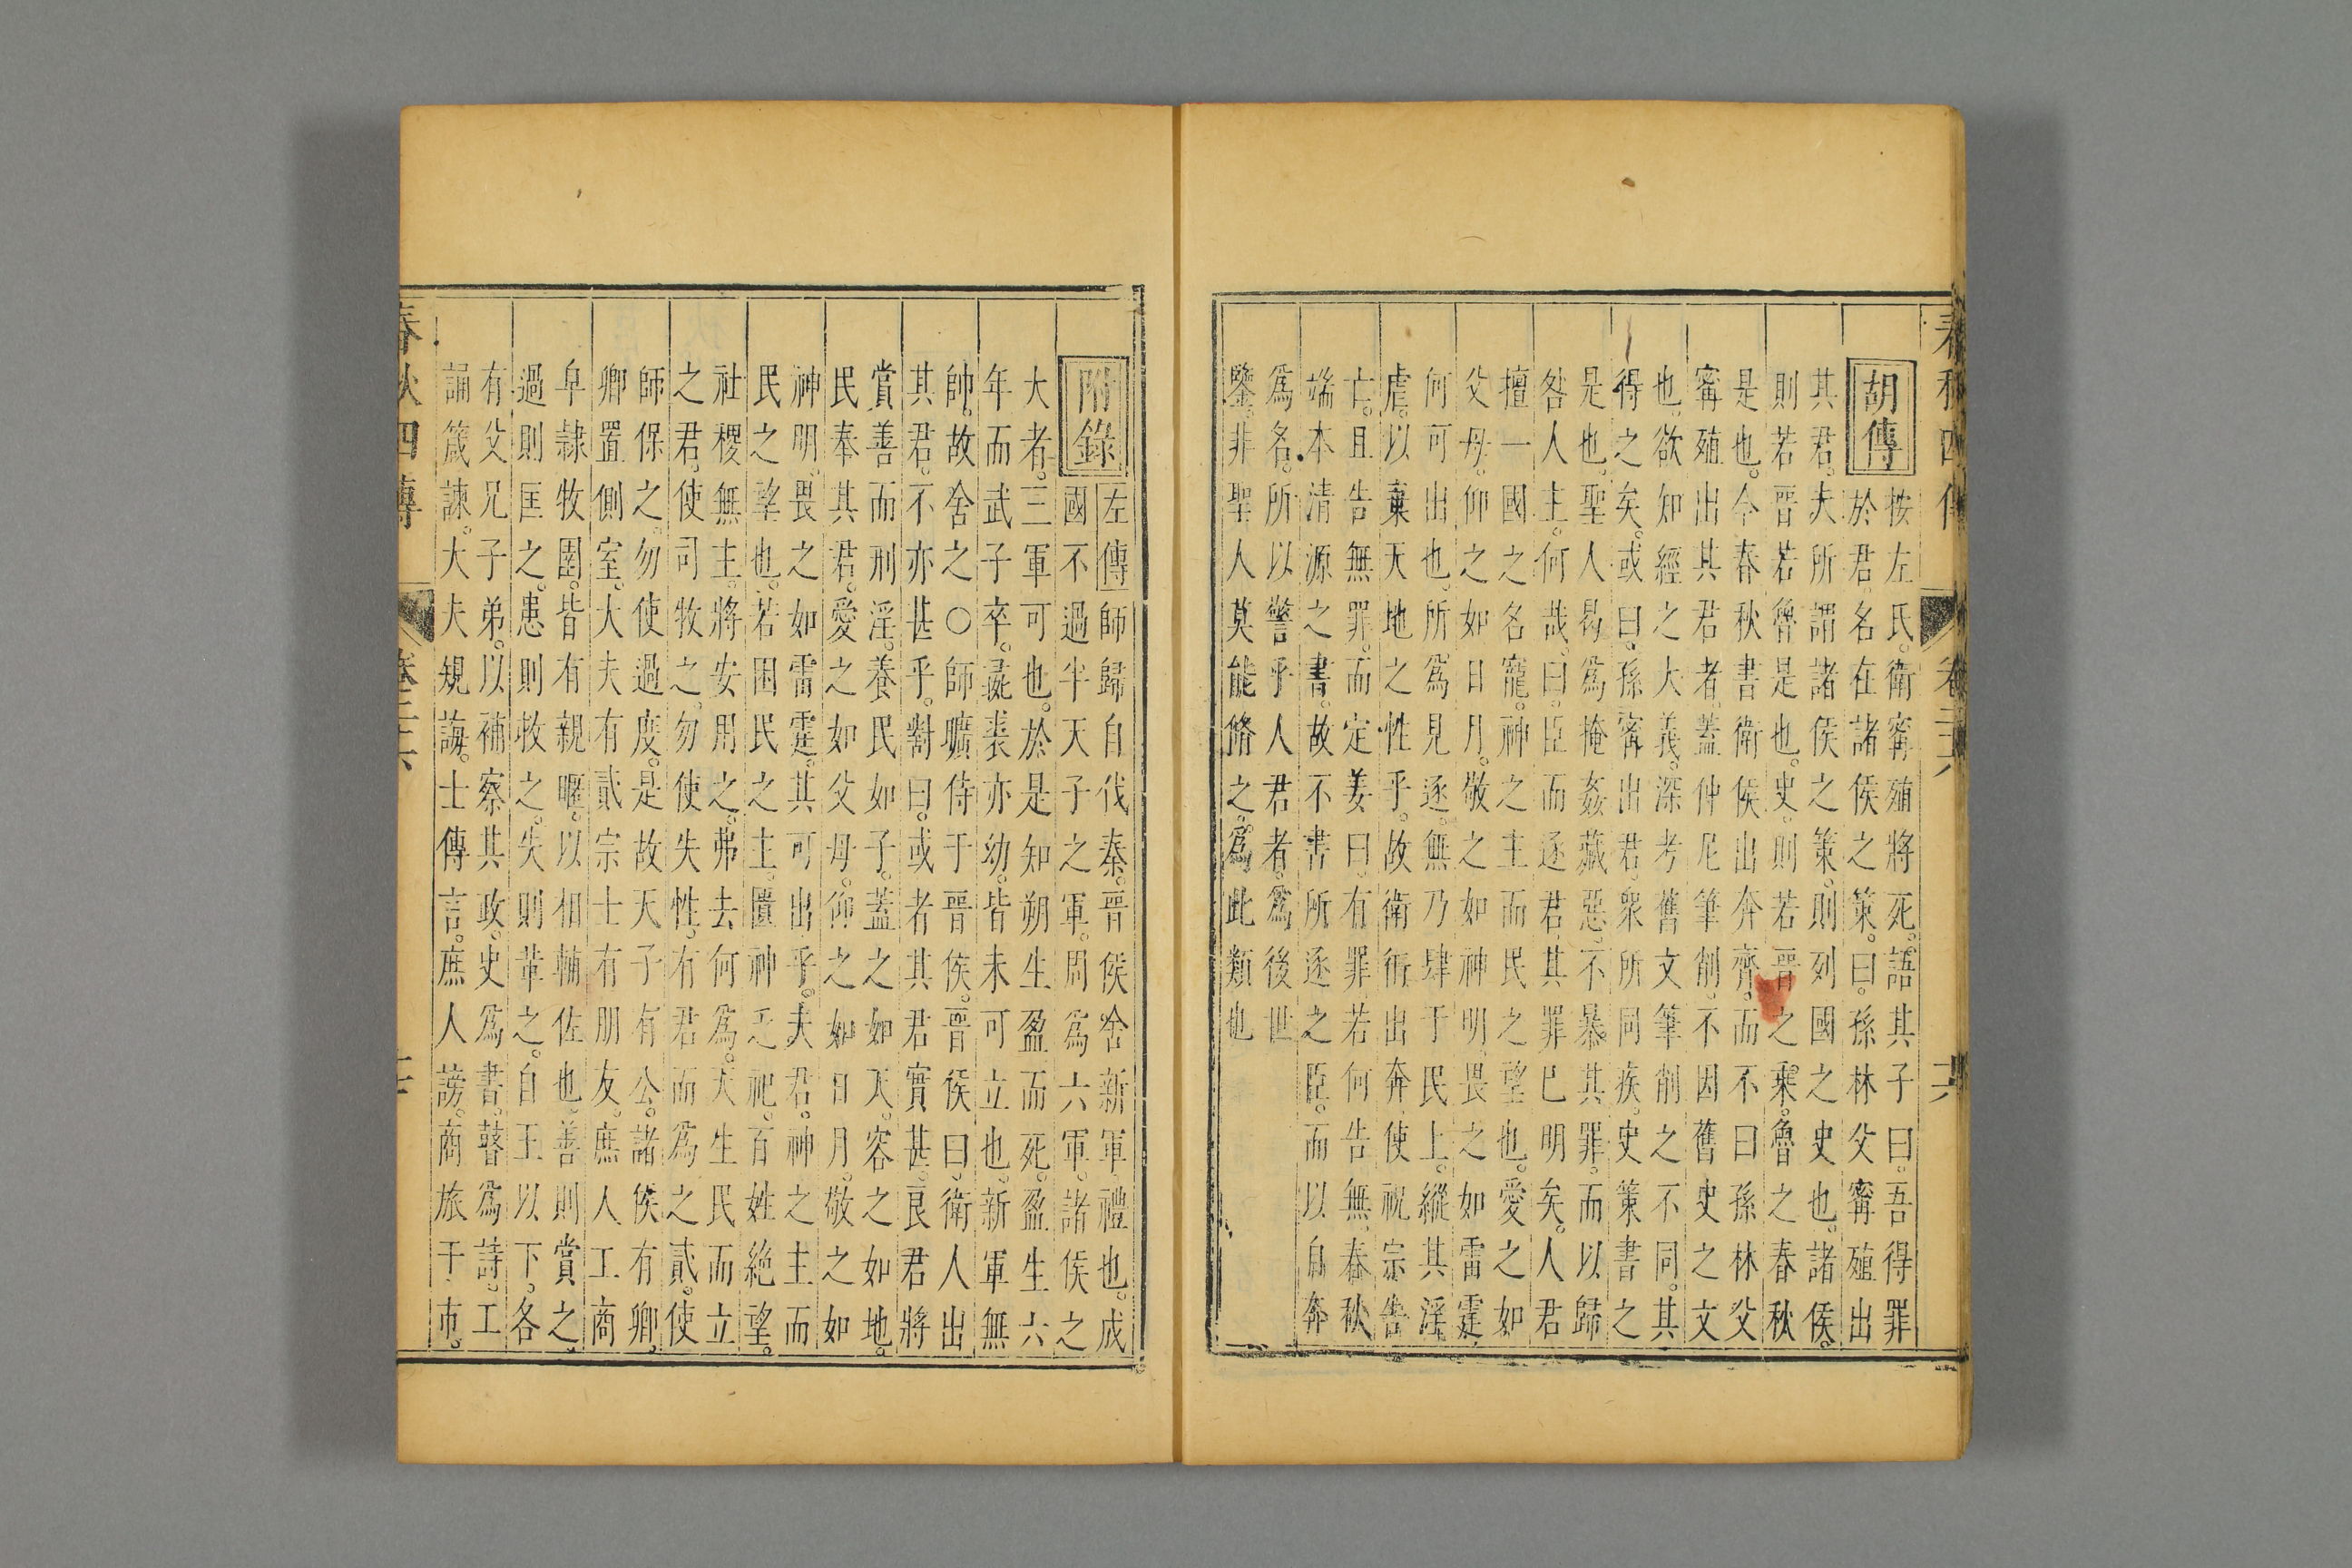 春秋四傳 卷二十六 十六
胡傳
按左氏。衛甯殖將死。語其子曰。吾得罪
於君。名在諸侯之策。曰。孫林父甯殖出
其君。夫所謂諸侯之策。則列國之史也。諸侯。
則若晉若魯是也。史。則若晉之乘。魯之春秋
是也。今春秋書衛侯出奔齊。而不曰孫林父
甯殖出其君者。蓋仲尼筆削。不因舊史之文
也。欲知經之大義。深考舊文筆削之不同。其
得之矣。或曰。孫甯出君。衆所同疾。史策書之
是也。聖人曷爲掩姦藏惡。不暴其罪。而以歸
咎人主。何哉。曰。臣而逐君。其罪已明矣。人君
擅一國之名寵。神之主而民之望也。愛之如
父母。仰之如日月。敬之如神明。畏之如雷霆。
何可出也。所爲見逐。無乃肆于民上。縱其淫
虐。以棄天地之性乎。故衛衎出奔。使祝宗告
亡。且告無罪。而定姜曰。有罪。若何告無。春秋
端本清源之書。故不書所逐之臣。而以自奔
爲名。所以警乎人君者。爲後世
鑒。非聖人莫能脩之。爲此類也
附錄
左傳師歸自伐秦。晉侯舍新軍。禮也。成
國不過半天子之軍。周爲六軍。諸侯之
大者。三軍可也。於是知朔生盈而死。盈生六
年而武子卒。彘裘亦幼。皆未可立也。新軍無
帥。故舍之〇師曠侍于晉侯。晉侯曰。衛人出
其君。不亦甚乎。對曰。或者其君實甚。良君將
賞善而刑淫。養民如子。蓋之如天。容之如地。
民奉其君。愛之如父母。仰之如日月。敬之如
神明。畏之如雷霆。其可出乎。夫君。神之主而
民之望也。若困民之主。匱神乏祀。百姓絶望。
社稷無主。將安用之。弗去何爲。天生民而立
之君。使司牧之。勿使失性。有君而爲之貳。使
師保之。勿使過度。是故天子有公。諸侯有卿。
卿置側室。大夫有貳宗士有朋友。庶人工商
阜隸牧圉。皆有親暱。以相輔佐也。善則賞之。
過則匡之。患則救之。失則革之。自王以下。各
有父兄子弟。以補察其政。史爲書。瞽爲詩。工
誦箴諫。大夫規誨。士傳言。庶人謗。商旅于市。
春秋四傳 卷二十六